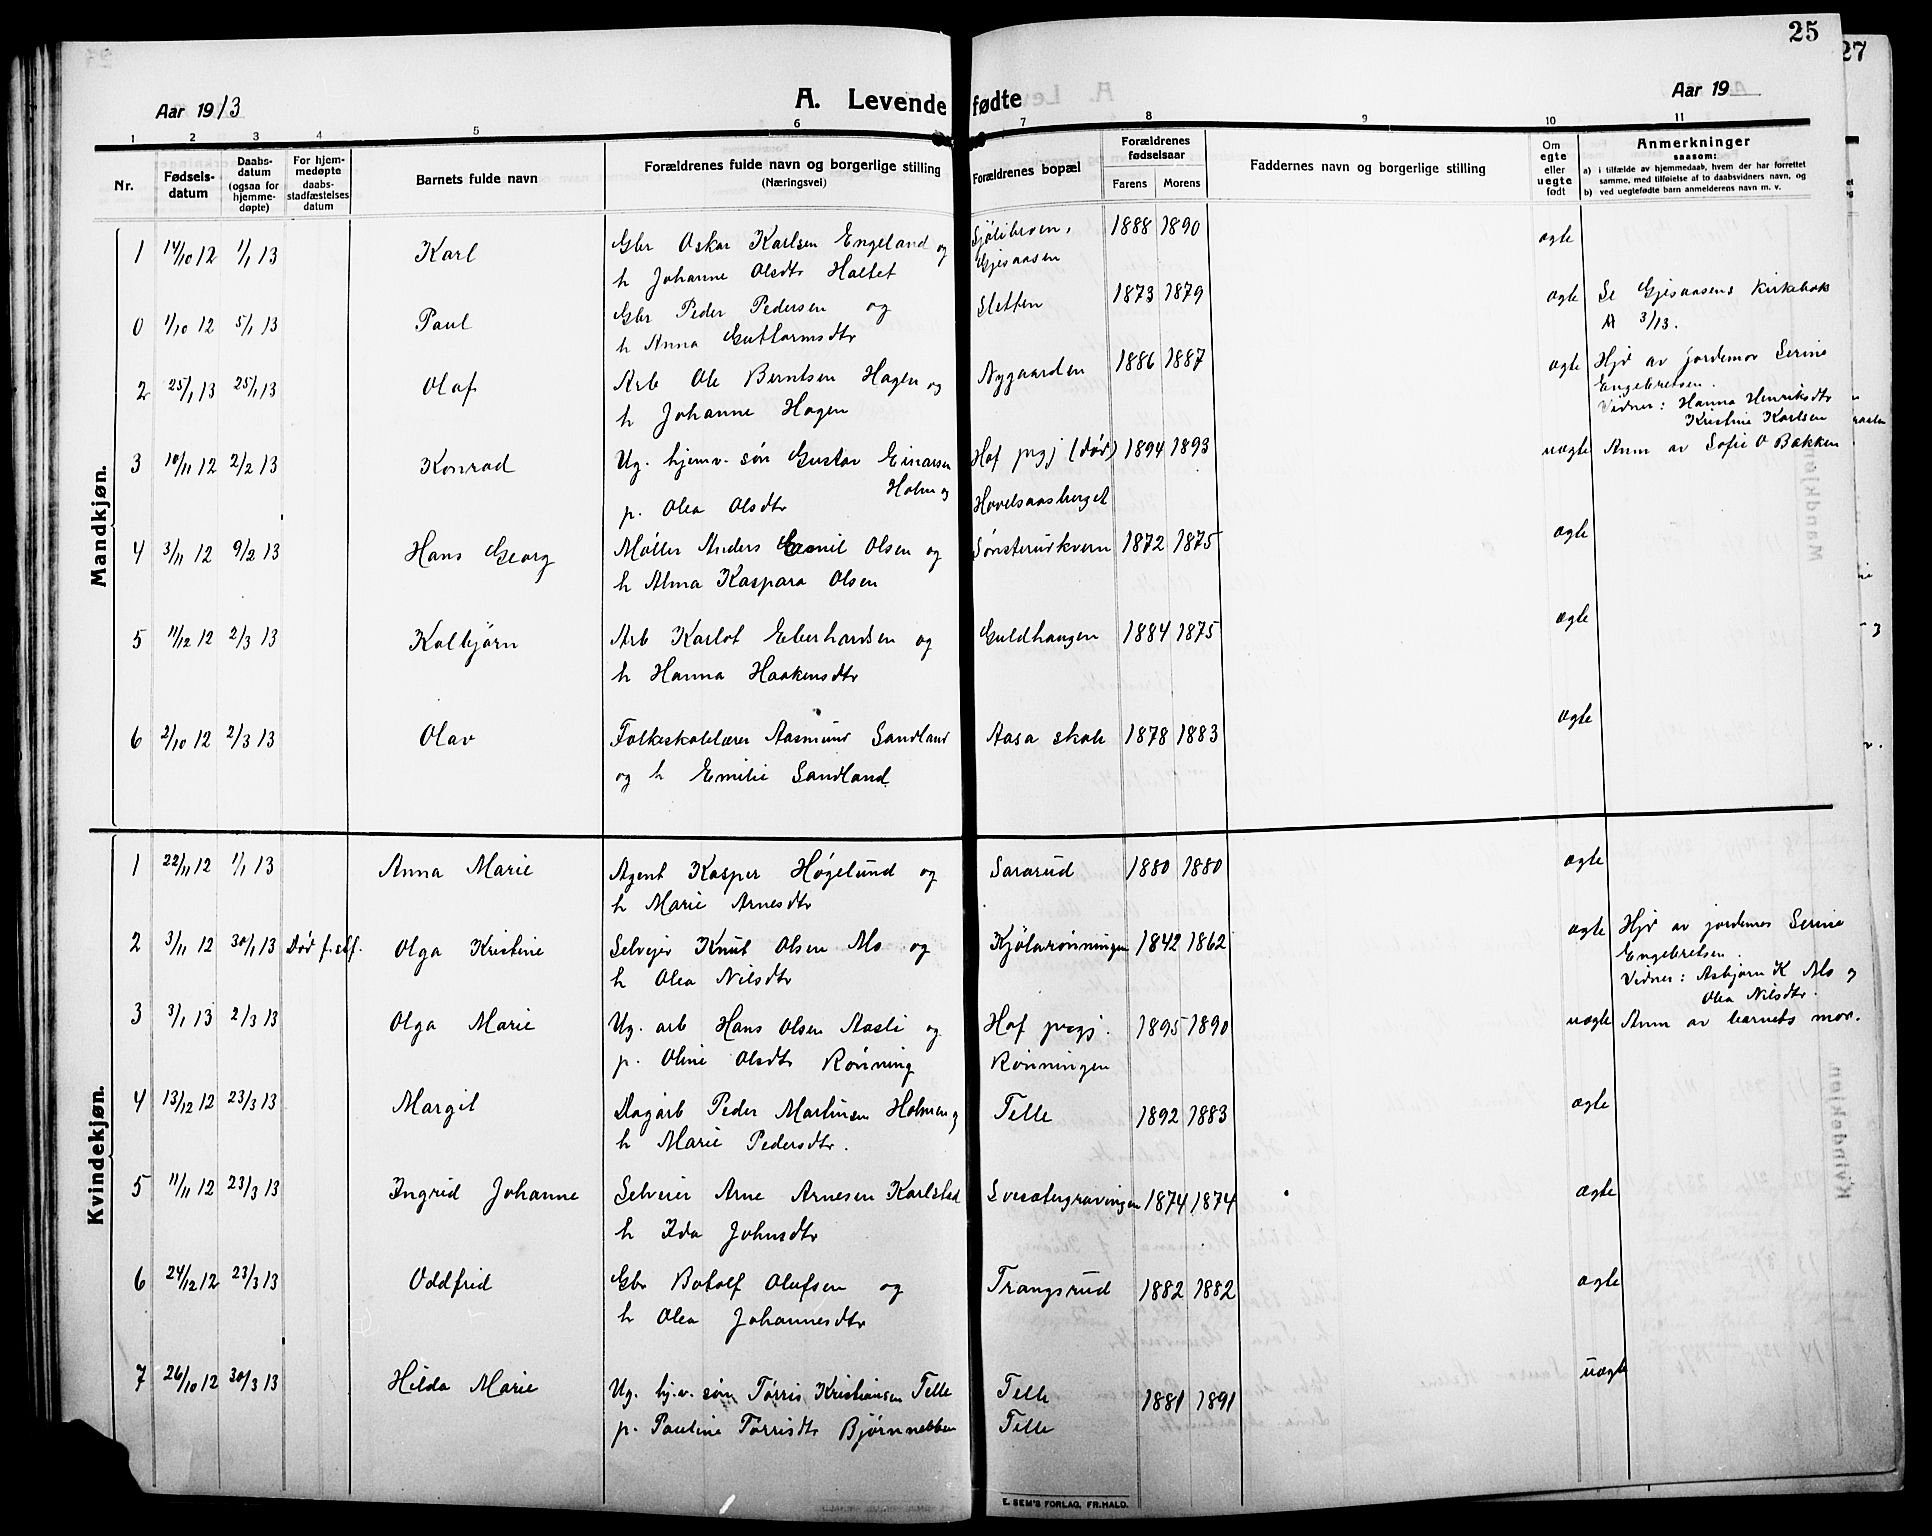 25
27
Aar 1913
A. Levende fødte
Aar 19
1 2 3 4 5 6 7 8 9 10 11
Nr.
Fødsels-
datum
Daabs-
datum
(ogsaa for
hjemme-
døpte)
For hjem-
medøpte
daabs-
stadfæstelses
datum
Barnets fulde navn
Forældrenes fulde navn og borgerlige stilling
(Næringsvei)
Forældrenes bopæl
Forældrenes
fødselsaar
Farens Morens
Faddernes navn og borgerlige stilling
Om
egte
eller
uegte
født
Anmerkninger
saasom:
a) i tilfælde av hjemmedaab, hvem der har forrettet
samme, med tilføielse af to daabsvidners navn, og
b) ved uegtefødte barn anmelderens navn m. v.
Mandkjøn.
1 14/10 12 1/1 13 Karl Gbr Oskar Karlsen Engeland og 1888 1890 ægte
h Johanne Olsdtr Haltet Gjesaasen
0 1/10 12 5/1 13 Paul Gbr Peder Pedersen og Sletten 1873 1879 ægte Se Gjesaasens Kirkebok
h Anna Guttormsdtr A 3/13.
2 25/1 13 25/1 13 Olaf Arb Ole Berntsen Hagen og Nygaarden 1886 1887 ægte Hjd av jordemor Serine
h Johanne Hagen Engebretsen.
Vidner: Hanna Henriksdtr
Kristine Karlsen
3 10/11 12 2/2 13 Konrad Ug. hjemv. søn Gustav Einarsen Hof prgj (død) 1894 1893 uægte Anm av Sofie O Bakken
Holm og
p. Olea Olsdtr Hovelsaasberget
4 3/11 12 9/2 13 Hans Georg Møller Anders Emil Olsen og Sønsterudkvern 1872 1875 ægte
h Alma Kaspara Olsen
5 11/12 12 2/3 13 Kolbjørn Arb Karlot Eberhardsen og Guldhaugen 1884 1875 ægte
h Hanna Haakensdtr
6 2/10 12 2/3 13 Olav Folkeskolelærer Aasmund Sandland Aasa skole 1878 1883 ægte
og h Emilie Sandland
Kvindekjøn.
1 22/11 12 1/1 13 Anna Marie Agent Kasper Høgelund og Sararud 1880 1880 ægte
h Marie Arnesdtr
2 3/11 12 30/1 13 Død f. stf. Olga Kristine Selveier Knut Olsen Mo og Kjølarønningen 1842 1862 ægte Hjd av jordemor Serine
h Olea Nilsdtr Engebretsen.
Vidner: Asbjørn K Mo og
Olea Nilsdtr.
3 3/1 13 2/3 13 Olga Marie Ug. arb Hans Olsen Aasli og Hof prgj. 1895 1890 uægte Anm av barnets mor.
p. Oline Olsdtr Rønning Rønningen
4 13/12 12 23/3 13 Margit Dagarb Peder Martinsen Holmen og Telle 1892 1883 ægte
h Marie Pedersdtr.
5 11/11 12 23/3 13 Ingrid Johanne Selveier Arne Arnesen Karlstad 1874 1874 ægte
h Ida Johnsdtr
6 24/12 12 23/3 13 Oddfrid Gbr Botolf Olufsen og Trangsrud 1882 1882 ægte
h Olea Johannesdtr
7 26/10 12 30/3 13 Hilda Marie Ug. hj.v. søn Tørris Kristiansen Telle Telle 1881 1891 uægte
p. Pauline Tørrisdtr Bjørnnebben Telle
E. SEM'S FORLAG, FR.HALD.